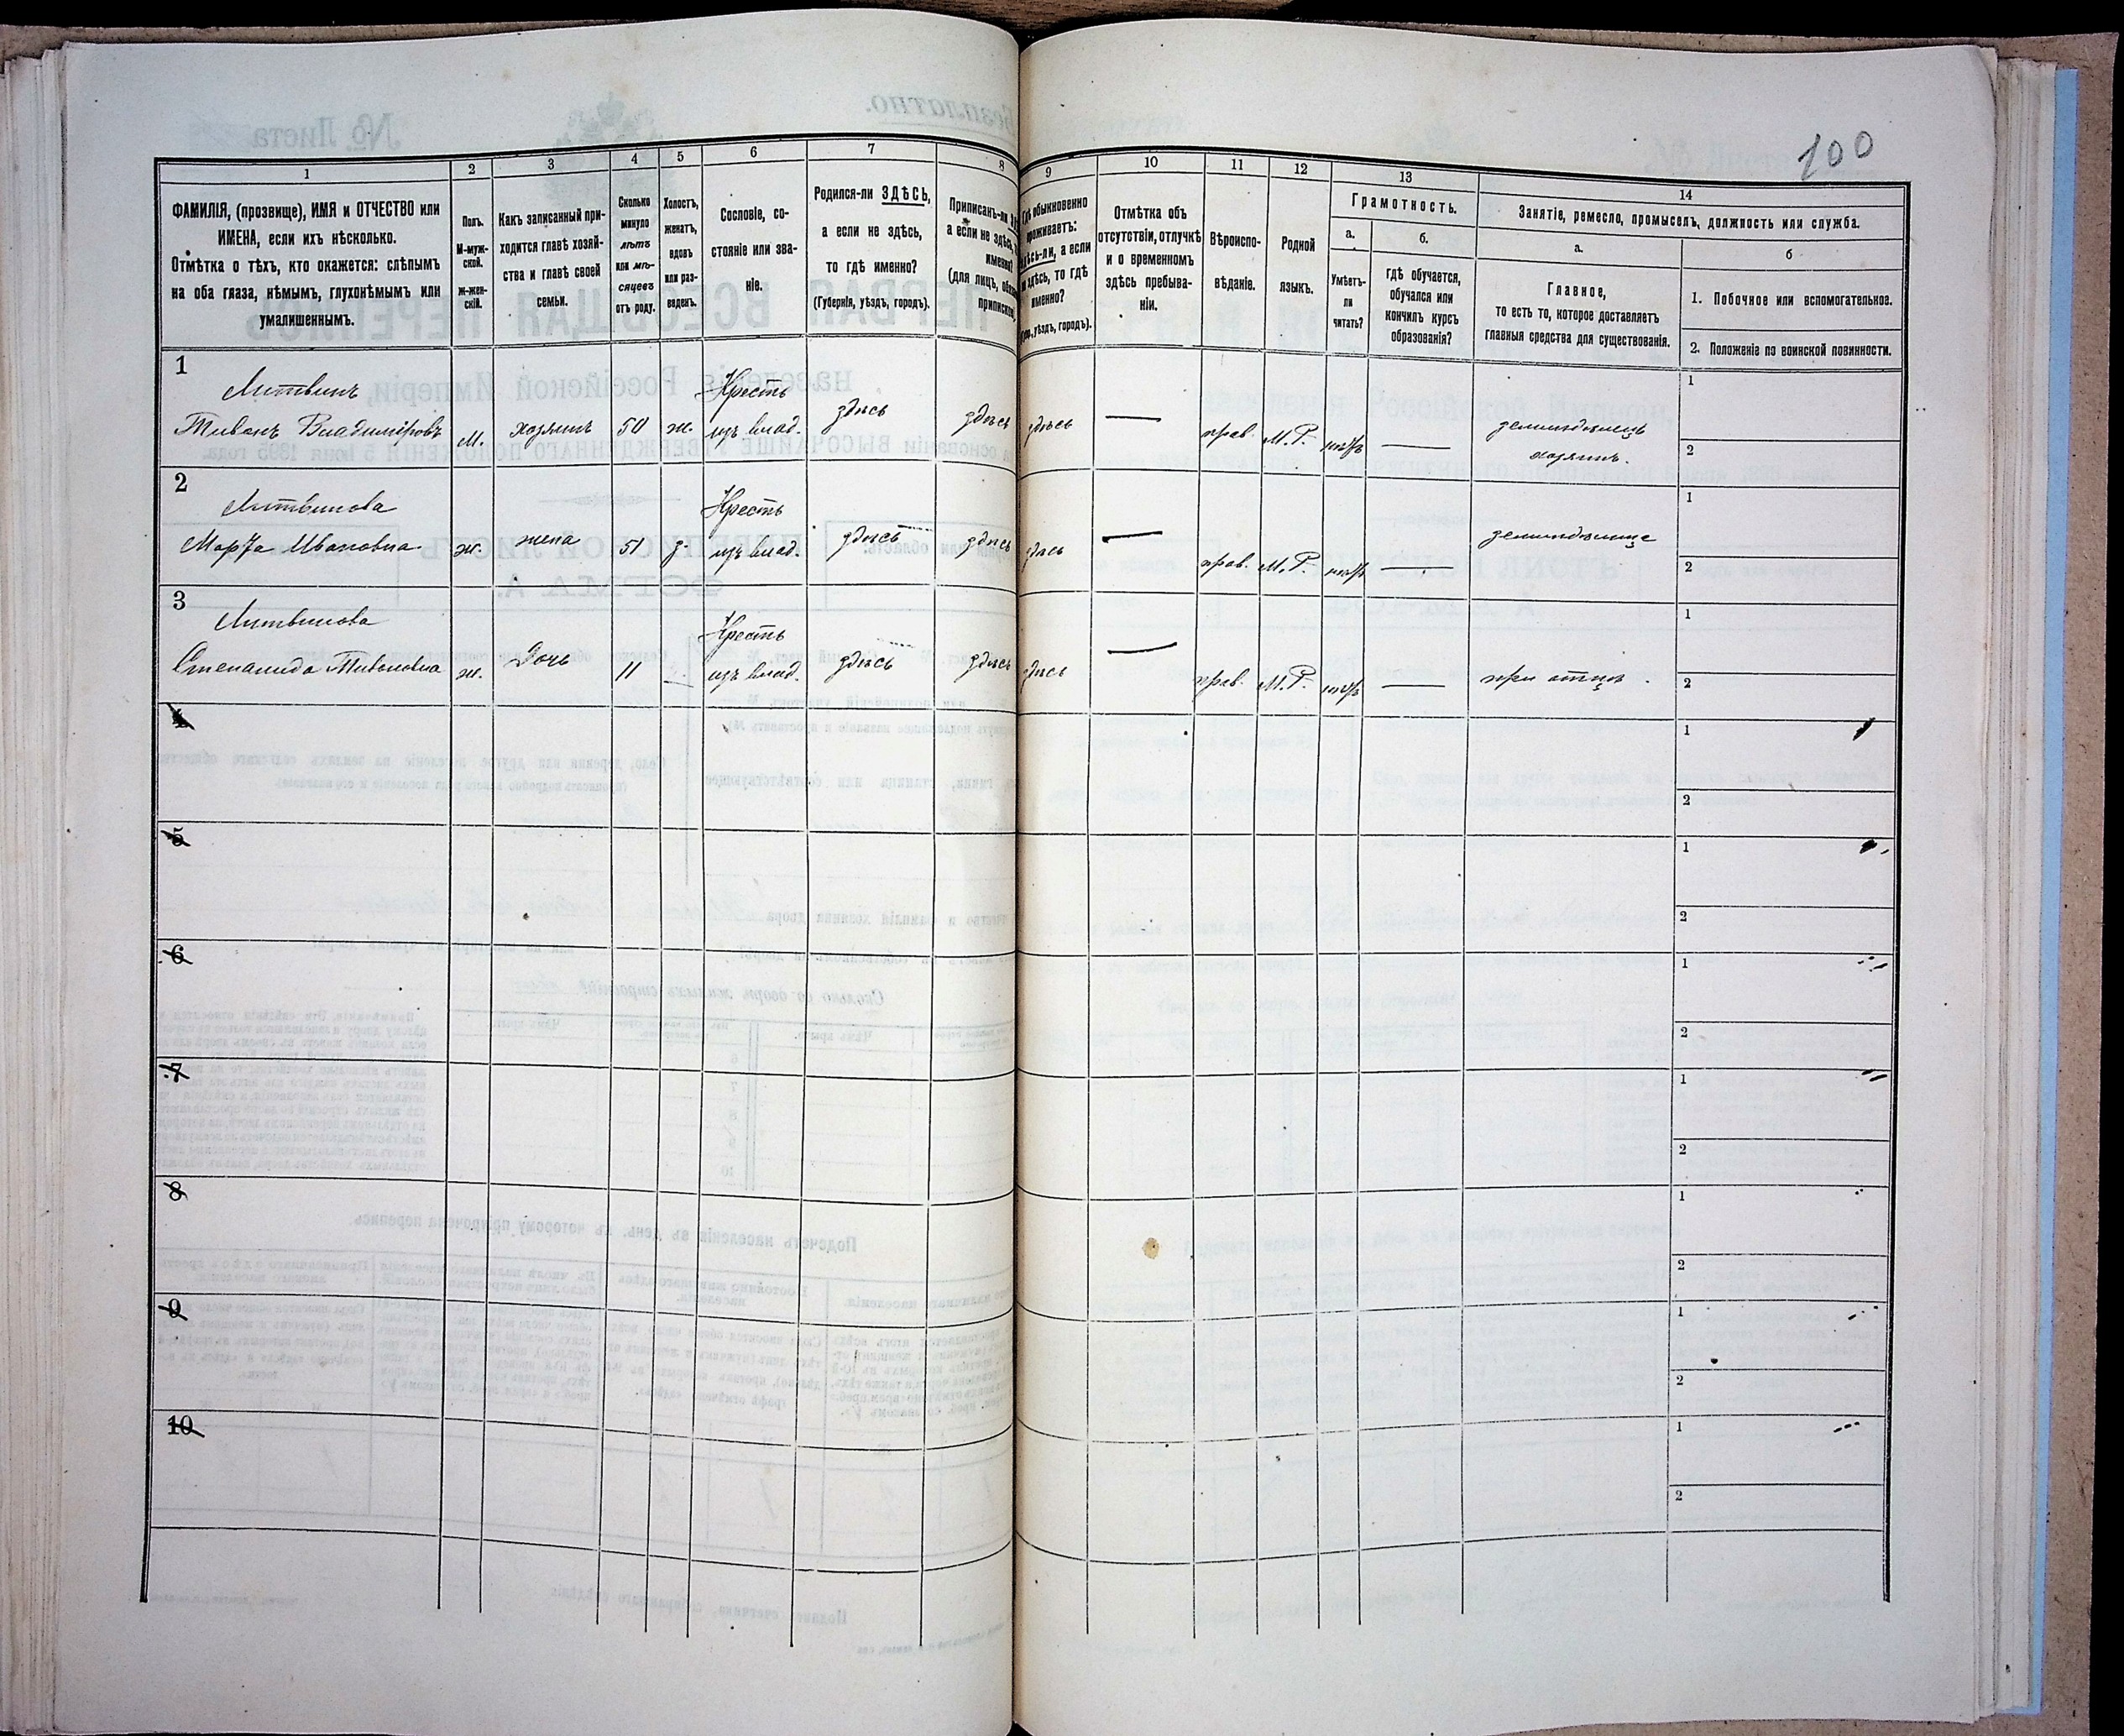 100
1
2
3
4
5
6
7
8
9
10
11
12
13
14
ФАМИЛІЯ, (прозвище), ИМЯ и ОТЧЕСТВО или
ИМЕНА, если ихъ нѣсколько.
Отмѣтка о тѣхъ, кто окажется: слѣпымъ
на оба глаза, нѣмымъ, глухонѣмымъ или
умалишеннымъ.
Полъ.
М-муж-
ской.
Ж-жен-
скій.
Какъ записанный при-
ходится главѣ хозяй-
ства и главѣ своей
семьи.
Сколько
минуло
лѣтъ
или мѣ-
сяцевъ
отъ роду.
Холостъ,
женатъ,
вдовъ
или раз-
веденъ.
Сословіе, со-
стояніе или зва-
ніе.
Родился-ли ЗДѢСЬ,
а если не здѣсь,
то гдѣ именно?
(Губернія, уѣздъ, городъ).
Приписанъ-ли
а если не здѣсь,
именно?
(для лицъ,
обыкновенно
проживаетъ:
здѣсь-ли, а если
здѣсь, то гдѣ
именно?
уѣздъ, городъ).
Отмѣтка объ
отсутствіи, отлучкѣ
и о временномъ
здѣсь пребыва-
ніи.
Вѣроиспо-
вѣданіе.
Родной
языкъ.
Грамотность.
а.
Умѣетъ-
ли
читать?
б.
гдѣ обучается,
обучался или
кончилъ курсъ
образованія?
Занятіе, ремесло, промыселъ, должность или служба.
а.
Главное,
то есть то, которое доставляетъ
главныя средства для существованія.
б
1. Побочное или вспомогательное.
2. Положеніе по воинской повинности.
1
Литвинъ
Тивонъ Владиміровъ
м. хозяинъ 50 ж.
Крестъ
изъ влад.
здѣсь здѣсь здѣсь — прав. М.Р. нѣтъ —
земледѣлецъ
хозяинъ.
1
2
2
Литвинова
Марѳа Ивановна
ж. жена 51 з.
Крестъ
изъ влад.
здѣсь здѣсь здѣсь — прав. М.Р. нѣтъ —
1
2
3
Литвинова
Степанида Тивоновна
ж. Дочь 11 —
Крестъ
изъ влад.
здѣсь здѣсь здѣсь — прав. М.Р. нѣтъ — при отцѣ.
1
2
4
1
2
5
1
2
6
1
2
7
1
2
8
1
2
9
1
2
10
1
2